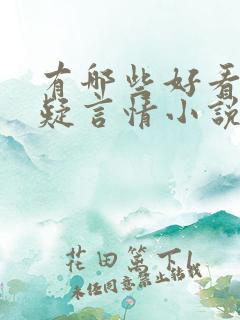 有哪些好看
疑言情小說
花田篱下
未经同意禁止转载